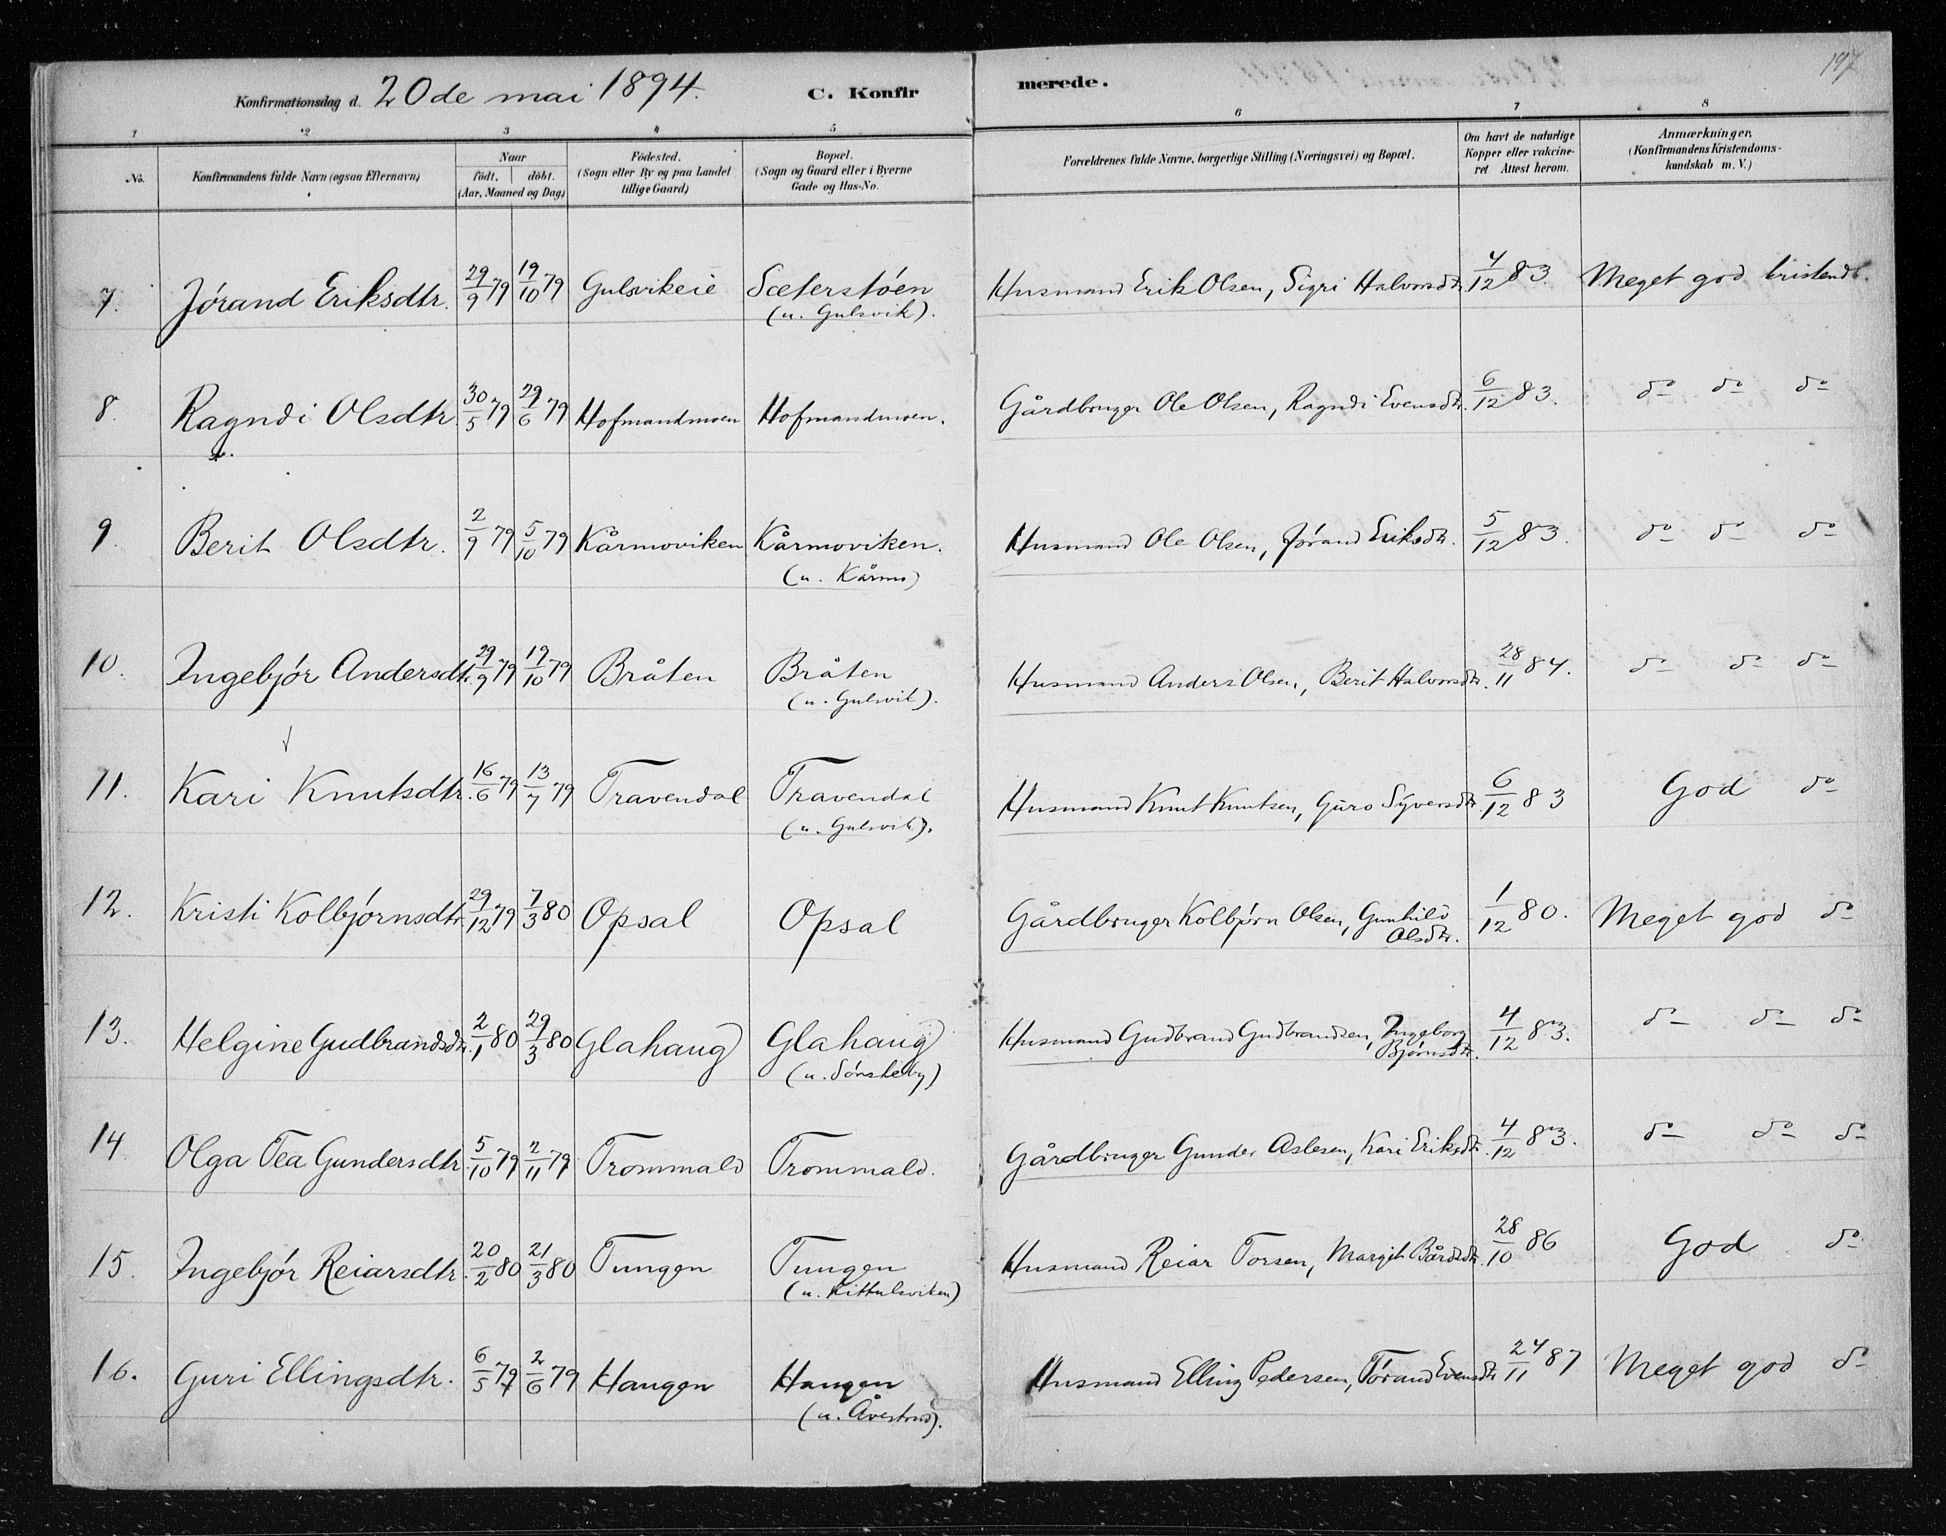 197
Konfirmationsdag d. 20de mai 1894. C. Konfirmerede.
1 2 3 4 5 6 7 8
No. Konfirmandens fulde Navn (ogsaa Efternavn) Naar födt. döbt. (Aar, Maaned og Dag) Födested. (Sogn eller By og paa Landet tillige Gaard) Bopæl. (Sogn og Gaard eller i Byerne Gade og Hus-No. Forældrenes fulde Navne, borgerlige Stilling (Næringsvei) og Bopæl. Om havt de naturlige Kopper eller vakcineret Attest herom. Anmærkninger. (Konfirmandens Kristendomskundskab m. V.)
7. Jórand Eriksdtr. 29/9 79 19/10 79 Gulsvikeie Sæterstóen Husmand Erik Olsen, Sigri Halvorsdtr. 4/12 83. Meget god kristendk.
(u. Gulsvik).
8. Ragndi Olsdtr. 30/5 79 29/6 79 Hofmandmoen Hofmandmoen. Gårdbruger Ole Olsen, Ragndi Evensdtr. 6/12 83. do do do
9. Berit Olsdtr. 2/9 79 5/10 79 Kårmoviken Kårmoviken. Husmand Ole Olsen, Jórand Eriksdtr. 5/12 83. do do do
(u. Kårmo)
10. Ingebjór Andersdtr. 29/9 79 19/10 79 Bråten Bråten Husmand Anders Olsen, Berit Halvorsdtr. 28/11 84. do do do
(u. Gulsvik).
11. Kari Knutsdtr. 16/6 79 13/7 79 Travendal Travendal Husmand Knut Knutsen, Guro Syversdtr. 6/12 83 God do
(u. Gulsvik).
12. Kristi Kolbjórnsdtr. 29/12 79 7/3 80 Opsal Opsal Gårdbruger Kolbjórn Olsen, Gunhild 1/12 80. Meget god do
Olsdtr.
13. Helgine Gudbrandsdtr. 2/1 80 29/3 80 Glahaug Glahaug Husmand Gudbrand Gudbrandsen, Ingeborg 4/12 83. do do do
(u. Sónsteby) Bjórnsdtr.
14. Olga Tea Gundersdtr. 5/10 79 2/11 79 Trommald Trommald. Gårdbruger Gunder Aslesen, Kari Eriksdtr. 4/12 83. do do do
15. Ingebjór Reiarsdtr. 20/2 80 21/3 80 Tungen Tungen Husmand Reiar Torsen, Margit Bårdsdtr. 28/10 86 God do
(u. Kittulsviken)
16. Guri Ellingsdtr. 6/5 79 2/6 79 Haugen Haugen Husmand Elling Pedersen, Tórand Evensdtr. 24/11 87 Meget god do
(u. Åvestrud).